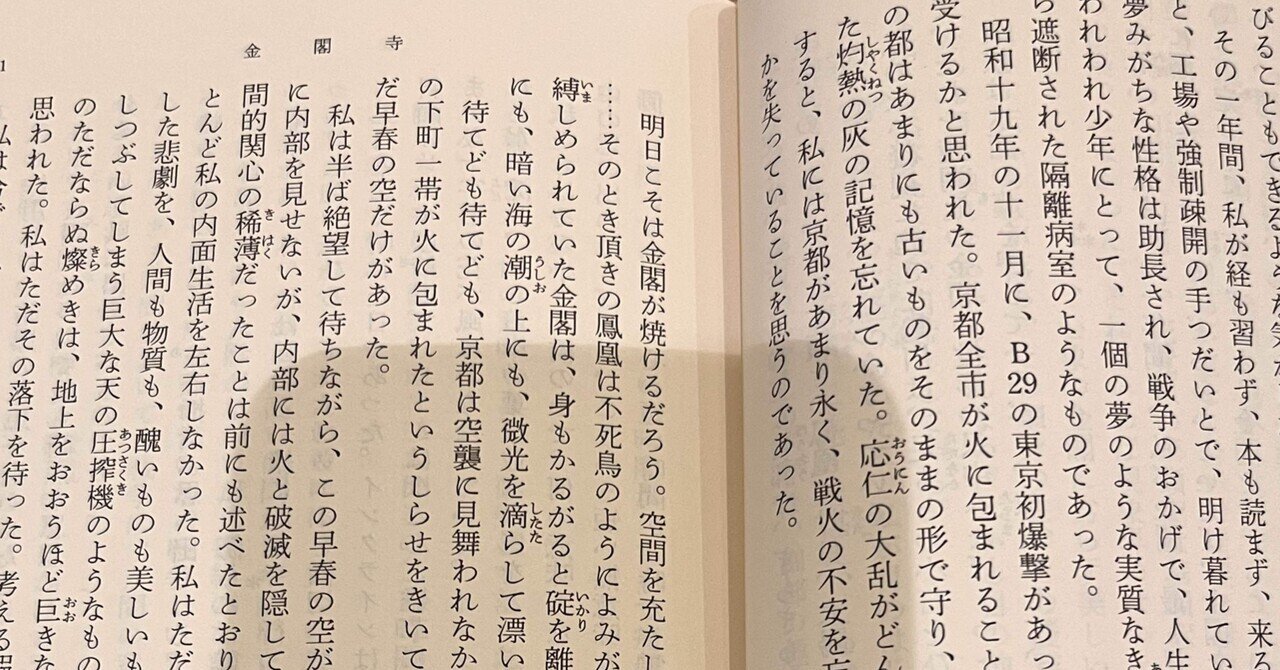 びることもできるような
その一年間、私が経も習わず、本も読まず、来る
と、工場や強制疎開の手つだいとで、明け暮れてい
夢みがちな性格は助長され、戦争のおかげで、人生
われわれ少年にとって、一個の夢のような実質なき
ら遮断された隔離病室のようなものであった。
昭和十九年の十一月に、B29の東京初爆撃があっ
受けるかと思われた。京都全市が火に包まれること
の都はあまりにも古いものをそのままの形で守り、
た灼熱の灰の記憶を忘れていた。応仁の大乱がどん
すると、私には京都があまり永く、戦火の不安を忘
かを失っていることを思うのであった。
金閣寺
明日こそは金閣が焼けるだろう。空間を充たし
……そのとき頂きの鳳凰は不死鳥のようによみが
縛しめられていた金閣は、身もかるがると碇を離
にも、暗い海の潮の上にも、微光を滴らして漂い
待てども待てども、京都は空襲に見舞われなか
の下町一帯が火に包まれたというしらせをきいて
だ早春の空だけがあった。
私は半ば絶望して待ちながら、この早春の空が
に内部を見せないが、内部には火と破滅を隠して
間的関心の稀薄だったことは前にも述べたとおり
とんど私の内面生活を左右しなかった。私はただ
した悲劇を、人間も物質も、醜いものも美しいも
しつぶしてしまう巨大な天の圧搾機のようなもの
のただならぬ燦めきは、地上をおおうほど巨きな
思われた。私はただその落下を待った。考える